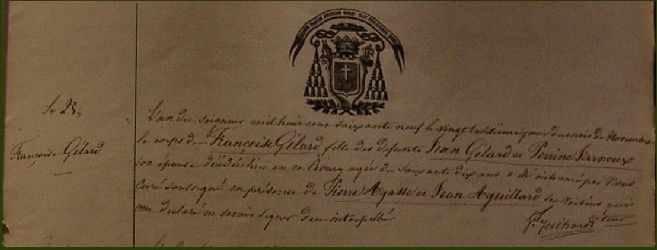 Le 28,
Françoise Gélard
L'an du Seigneur mil huit cent soixante neuf le vingt huitième jour du mois de Novembre
le corps de Françoise Gélard fille des defunts Jean Gélard et Perrine
son épouse décédée hier en ce Bourg agée de soixante dix ans a été inhumé par Nous
Curé soussigné en présence de Pierre Agasse et Jean Aguillard ses Voisins qui
ont déclaré ne savoir signer de ce interpellés